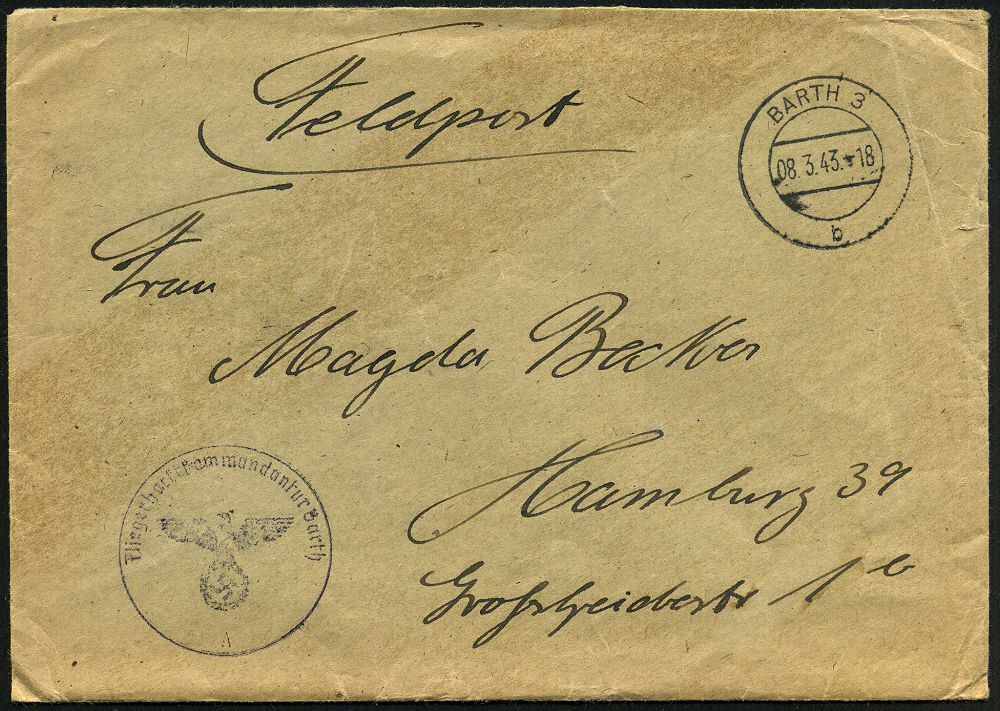 Feldpost
BARTH 3
08.3.43.-18
b
Frau
Magda Becker
Hamburg 39
Großheiderstr 1b
Fliegerhorstkommandantur Barth
A